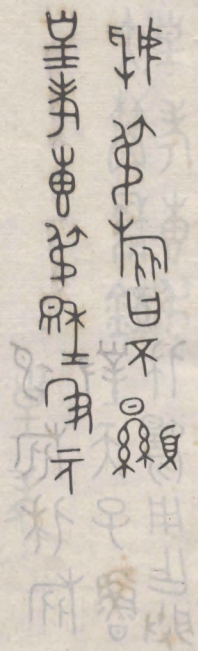 虢叔旅曰不顯
皇考叀叔穆=秉元